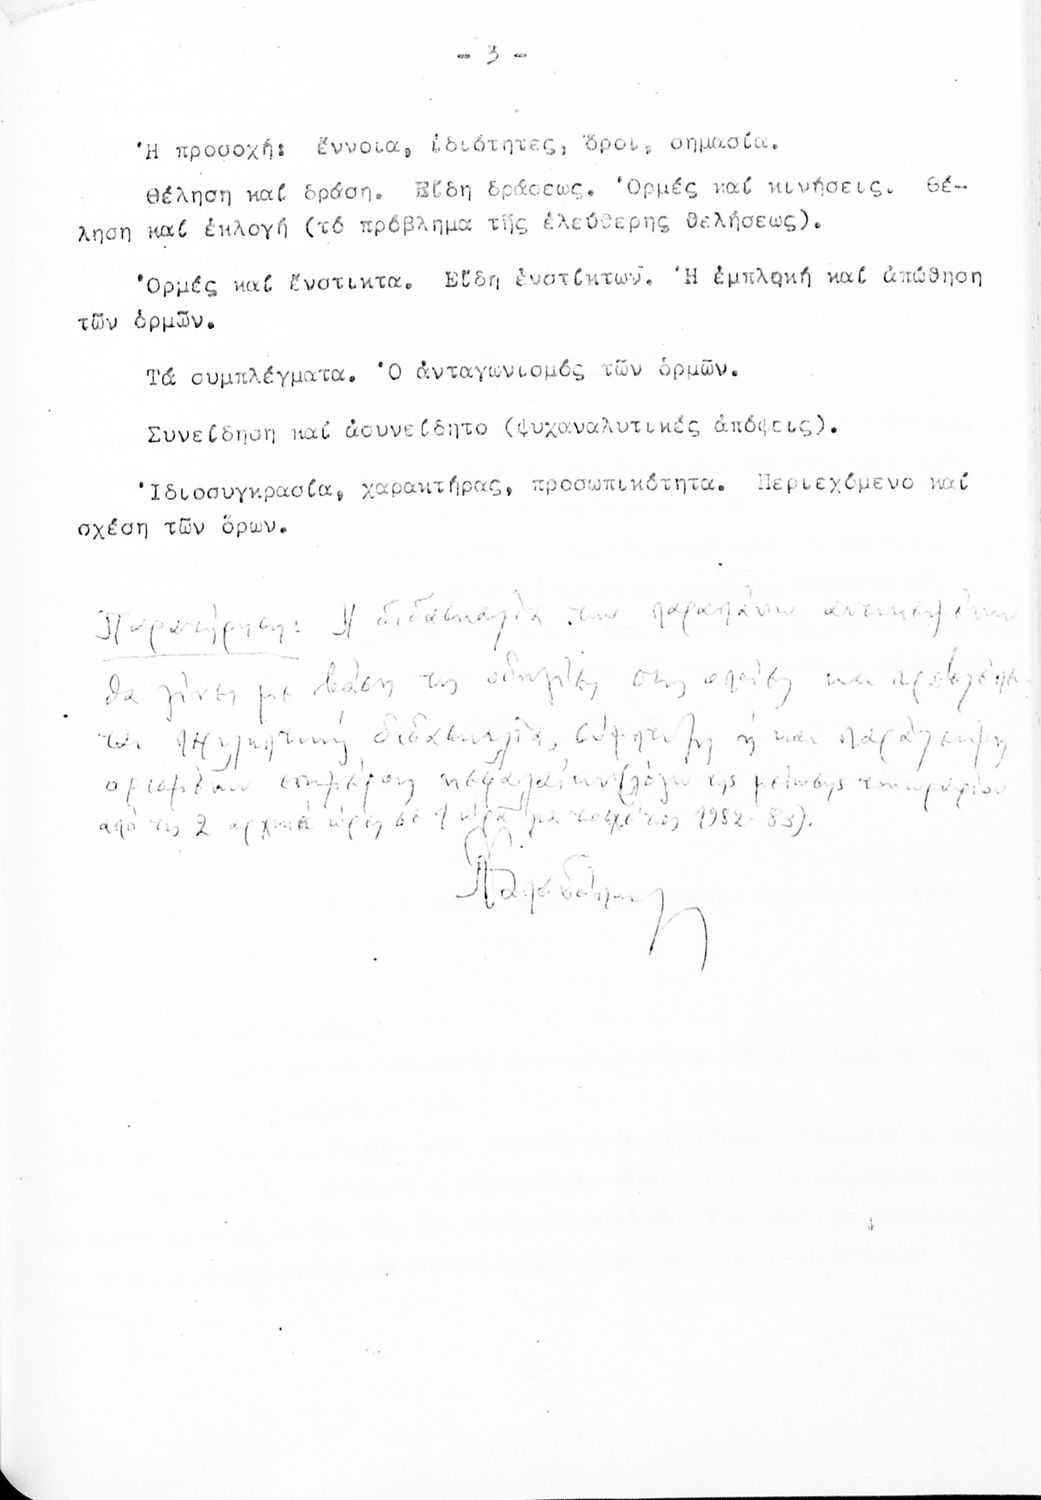 - 3 -
Ἡ προσοχή: ἔννοια, ἰδιότητες, ὅροι, σημασία.
Θέληση καί δράση. Εἴδη δράσεως. Ὁρμές καί κινήσεις. Θέ-
ληση καί ἐκλογή (τό πρόβλημα τῆς ἐλεύθερης θελήσεως).
Ὁρμές καί ἔνστικτα. Εἴδη ἐνστίκτων. Ἡ ἐμπλοκή καί ἀπώθηση
τῶν ὁρμῶν.
Τά συμπλέγματα. Ὁ ἀνταγωνισμός τῶν ὁρμῶν.
Συνείδηση καί ἀσυνείδητο (ψυχαναλυτικές ἀπόψεις).
Ἰδιοσυγκρασία, χαρακτήρας, προσωπικότητα. Περιεχόμενο καί
σχέση τῶν ὅρων.
Παρατήρηση: Η διδασκαλία των παραπάνω αντικειμένων
θα γίνει με βάση τις οδηγίες στις οποίες και προβλέπε-
ται περιληπτική διδασκαλία, σύμπτυξη ή και παράλειψη
ορισμένων επιμέρους κεφαλαίων (λόγω της μείωσης του ωραρίου
από τις 2 αρχικά ώρες σε 1 ώρα για το έτος 1982-83).